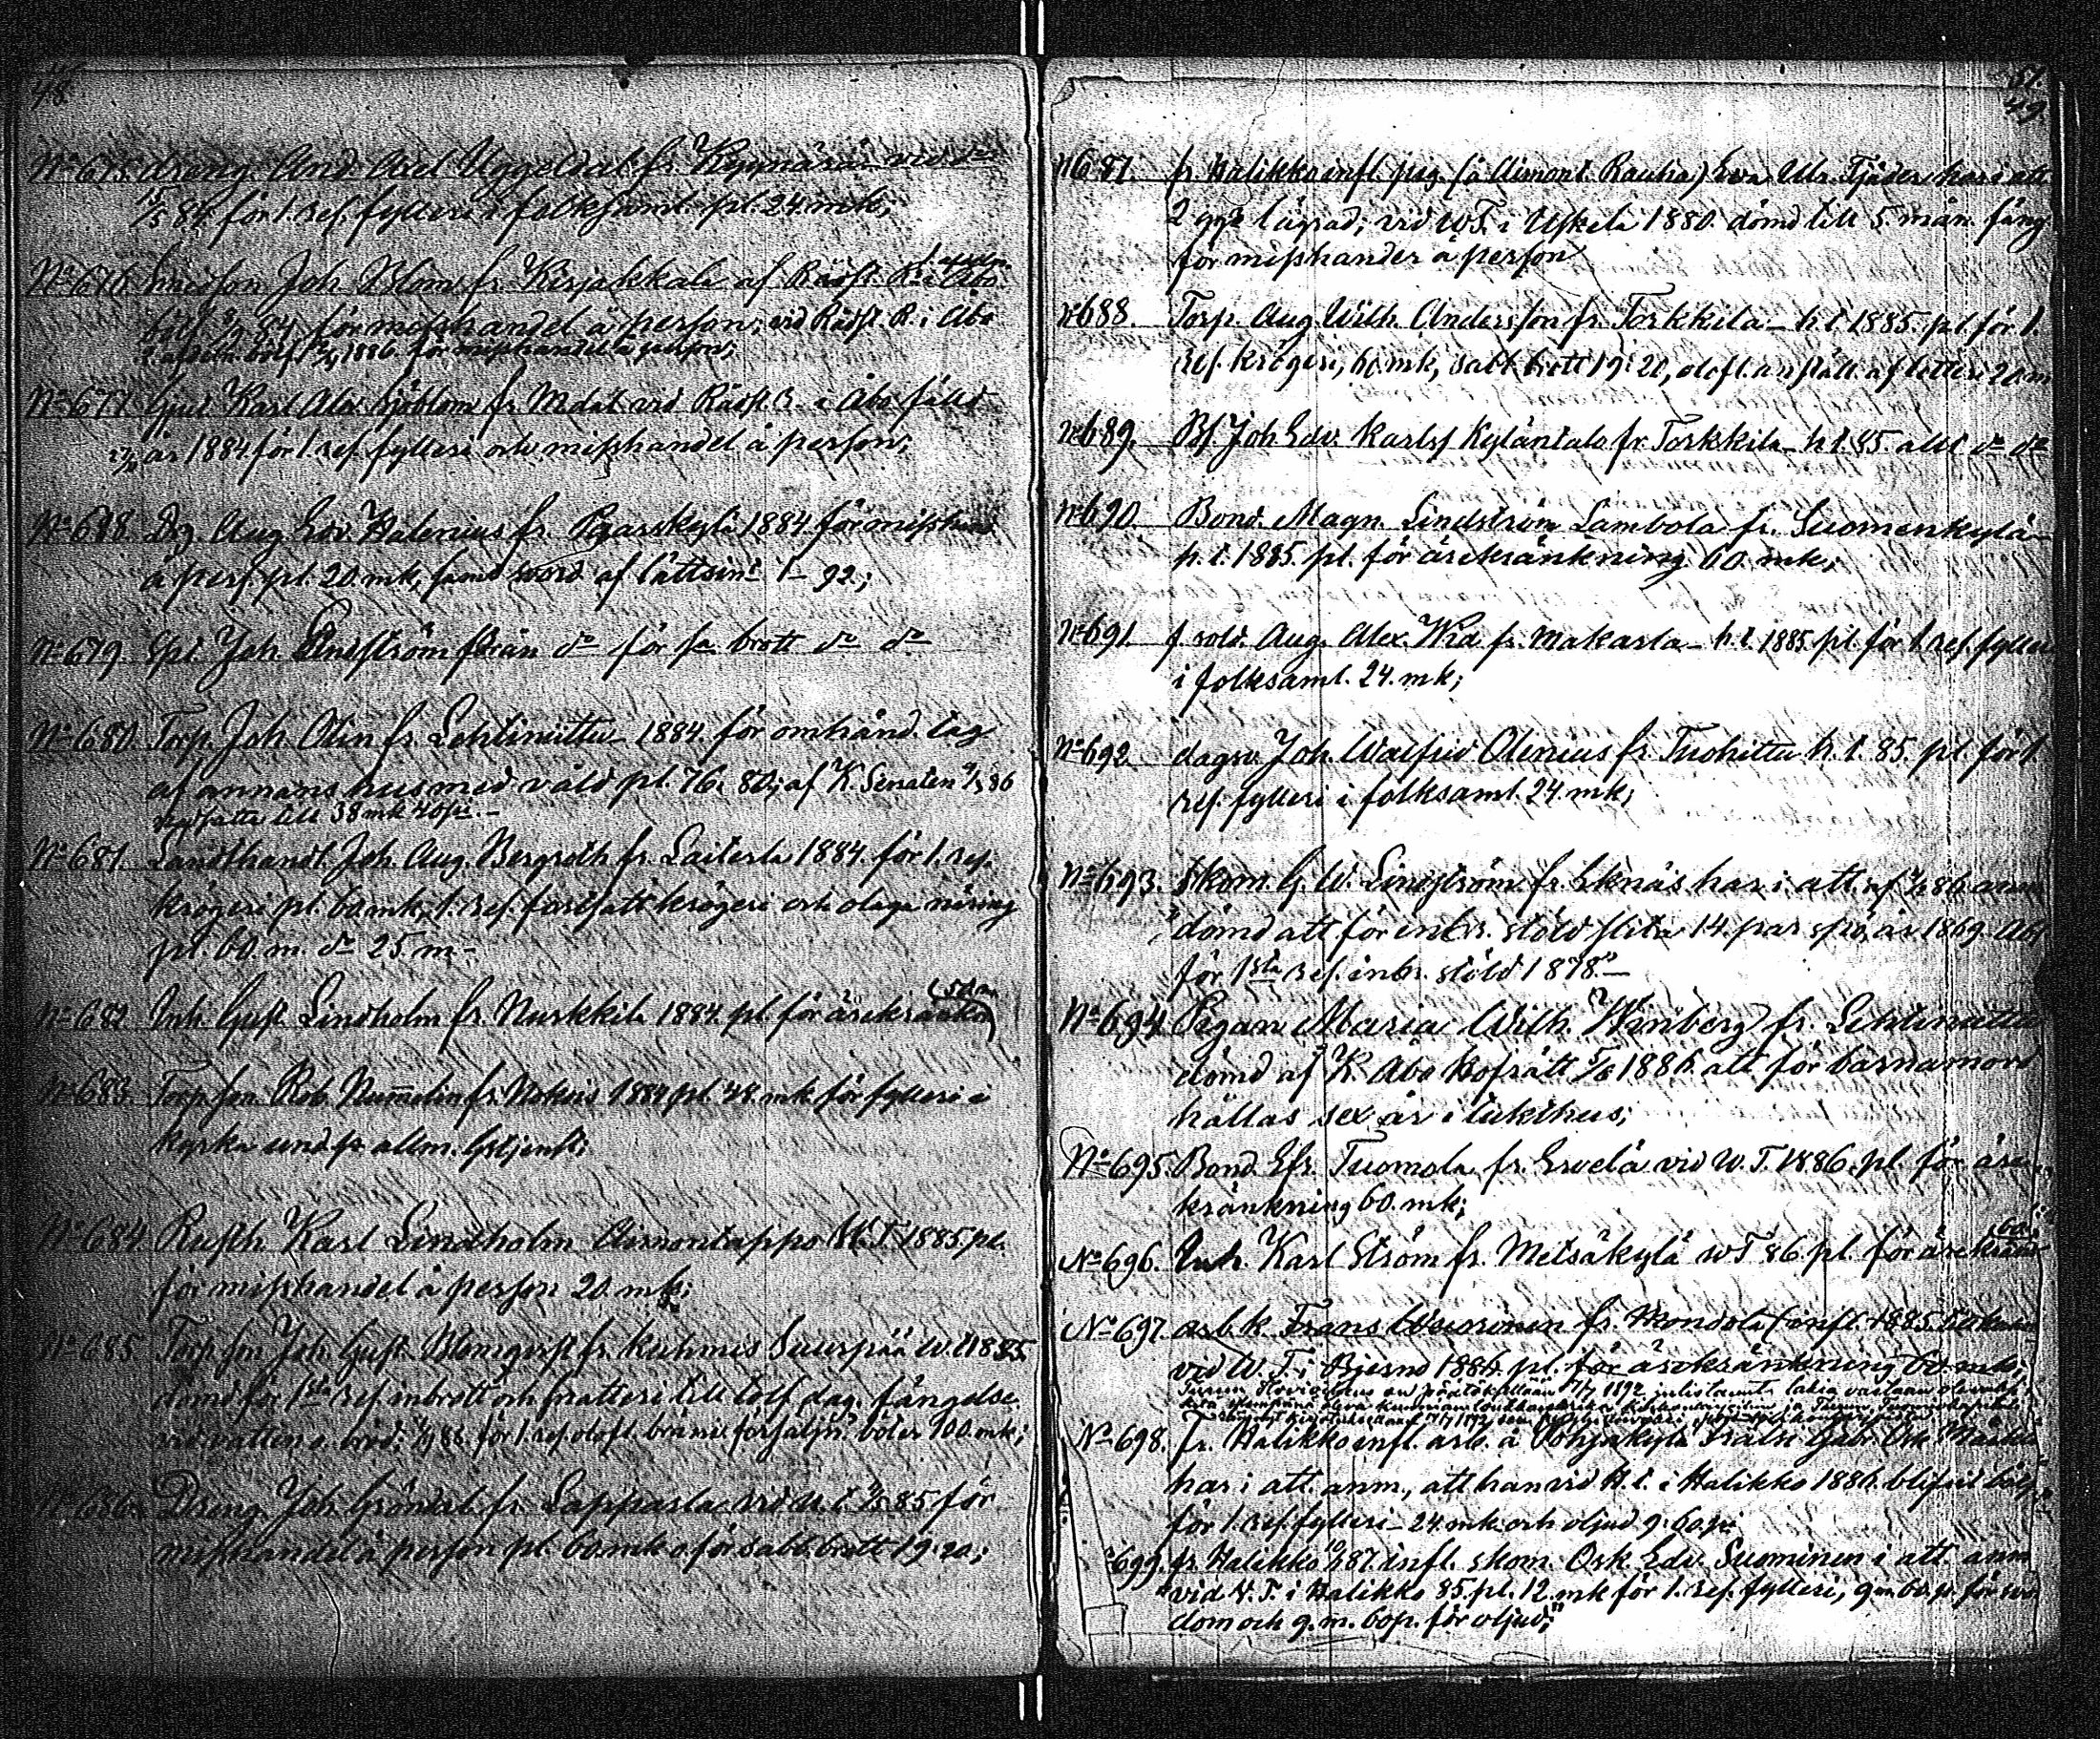 48.
No 675. dräng. And. Axel Uggeldal fr. Kyynärä vid do
15/5 84 för 1. res. fylleri i folksaml. pl. 24 mk;
No 676. Smedson Joh. Blom fr. Kirjakkala af Rådst. R. i Åbo
böt. 84 för misshandel å person; vid Rådst. R. i Åbo
1886 för misshandel å person;
No 677. Gjut. Karl Alex. Sjöblom fr. Mdal vid Rådst. R. i Åbo fälld
år 1884 för 1. res. fylleri och misshandel å person;
No 678. Drg. Aug. Edv. Halenius fr. Pgarskylä 1884 för misshand
å pers. pl. 20 mk, samt svord af lättsint 1 – 92;
No 679. Spl. Joh. Lindström från do för sa brott do do
No 680. Torp. Joh. Olin fr. Lehtiniittu – 1884. för omhänd. tag
af annans hus med våld pl. 76. 80; af K. Senaten 86
nedsatta till 38 mk 40 pi. –
No 681. Landthandl. Joh. Aug. Bergroth fr. Laiterla 1884. för 1. res.
krögeri pl. 60 mk; 1. res. fortsatt krögeri och olaga näring
pl. 60. m. do 25 m –
No 682. Inh. Gust. Lindholm fr. Nurkkila 1884. pl. för ärekränkn
No 683. Torpson Rob. Nummelin fr. Nokois 1884 pl. 48 mk för fylleri i
kyrka und. allm. Gstjenst;
No 684. Rusth. Karl Lindholm Aimontappo W. T. 1885 pl.
för misshandel å person 20. mk;
No 685. Torpson Joh. Gust. Blomqvist fr. Kuhmis Suurpää W. t 1885.
dömd för 1sta res. inbrott och snatteri till tolf dag. fängelse
vid vatten o. bröd; 88. för 1. res. olofl. bränv. försäljn. böter 100. mk;
No 686. Dräng. Joh. Grönlal fr. Lappasla vid 85 för
misshandel å person pl. 60. mk o. för sabb. brott 19. 20;
51.
49
No 687. fr. Halikko infl. pig. (å Aimont. Rauha) Eva Ulr. Tjäder har i att
2 ggr lägrad; vid W. T. i Uskela 1880. dömd till 5 mån. fäng
för misshandel å person
No 688. Torp. Aug. Wilh. Andersson fr. Torkkila – h. t. 1885. pl. för 1.
res. krögeri, 60. mk, sabb. brott 19. 20, olofl. anställ. af lotteri 20 m
No 689. Bs. Joh. Edv. Karlss. Kyläntala fr. Torkkila – h t. 85. allt do do
No 690. Bond. Magn. Lindström Lambola fr. Suomenkylä –
h. t. 1885. pl. för ärekränkning 60 mk;
No 691. f. sold. Aug. Alex. Wid fr. Makarla – h. t. 1885. pl. för 1. res. fyller
i folksaml. 24. mk;
No 692. dagsv. Joh. Walfrid Olenius fr. Tuohittu h. t. 85. pl. för 1.
res. fylleri i folksaml. 24 mk;
No 693. Skom. G. W. Lindström fr. Eknäs har i att. af 86 anm
dömd att för inbr. stöld slita 14. par spö, år 1869. Åbo
för 1sta res. inbr. stöld 1878. –
No 694. Pigan Maria Wilh. Winberg fr. Lehtiniittu
dömd af K. Åbo Hofrätt 1886. att för barnamord
hållas sex år i tukthus;
No 695. Bond. Efr. Tuomola fr. Ervelä vid W. T. 1886. pl. för äre
kränkning 60 mk;
No 696. Inh. Karl Ström fr. Metsäkylä w T 86. pl. för ärekränk
No 697. arb. k. Frans Wuorinen fr. (infl. 1885.
vid W. T. i Bjerno 1886. pl. för ärekränkning 60 mk;
1892
No 698. fr. Halikko infl. arb. å Pohjakylä Frälse Gabr. Osk.
har i att. anm., att han vid H. t. i Halikko 1886. blifvit böt
för 1. res. fylleri – 24. mk och oljud 9. 60. p.
699. fr. Halikko 87. infl. skom. Osk. Edv. Suominen i att. anm
"vid V. T. i Halikko 85. pl. 12. mk för 1. res. fylleri, 9 m 60. p. för svo
dom och 9. m. 60 p. för oljud;"